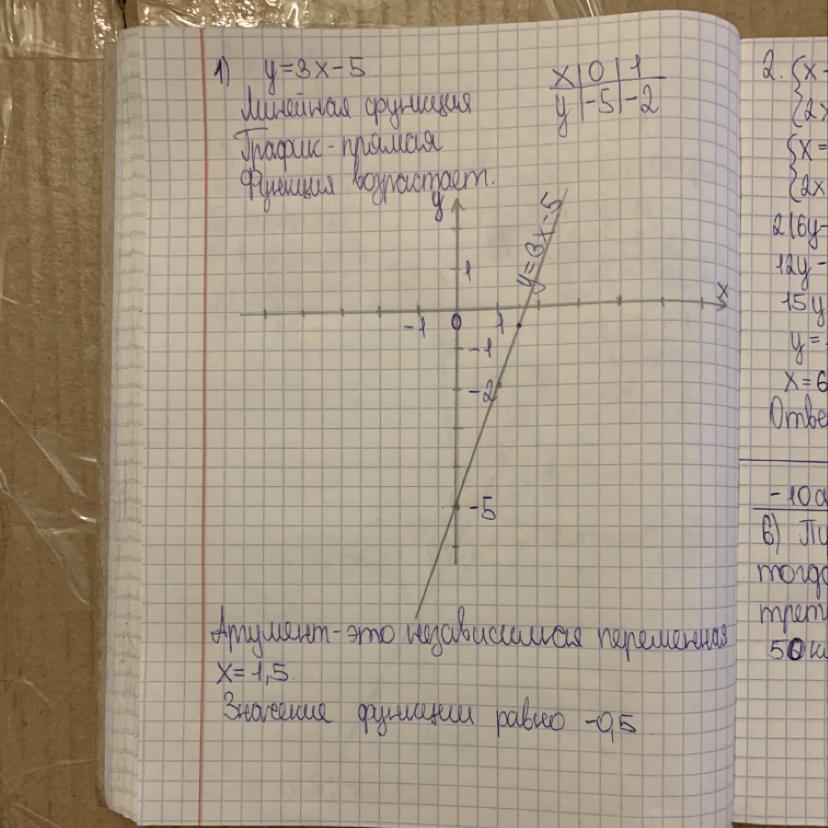 1) y=3x-5
x | 0 | 1
y | -5 | -2
Линейная функция
График-прямая
Функция возрастает.
y
y=3x-5
1
x
-1 0 1
-1
-2
-5
Аргумент-это независимая переменная
x=1,5.
Значение функции равно -0,5
2. {x-
{2x
{x=
{2x
2(6y-
12y-
15y
y=
x=6
Отве
-10a
6) Пу
тогда
трет
50 к